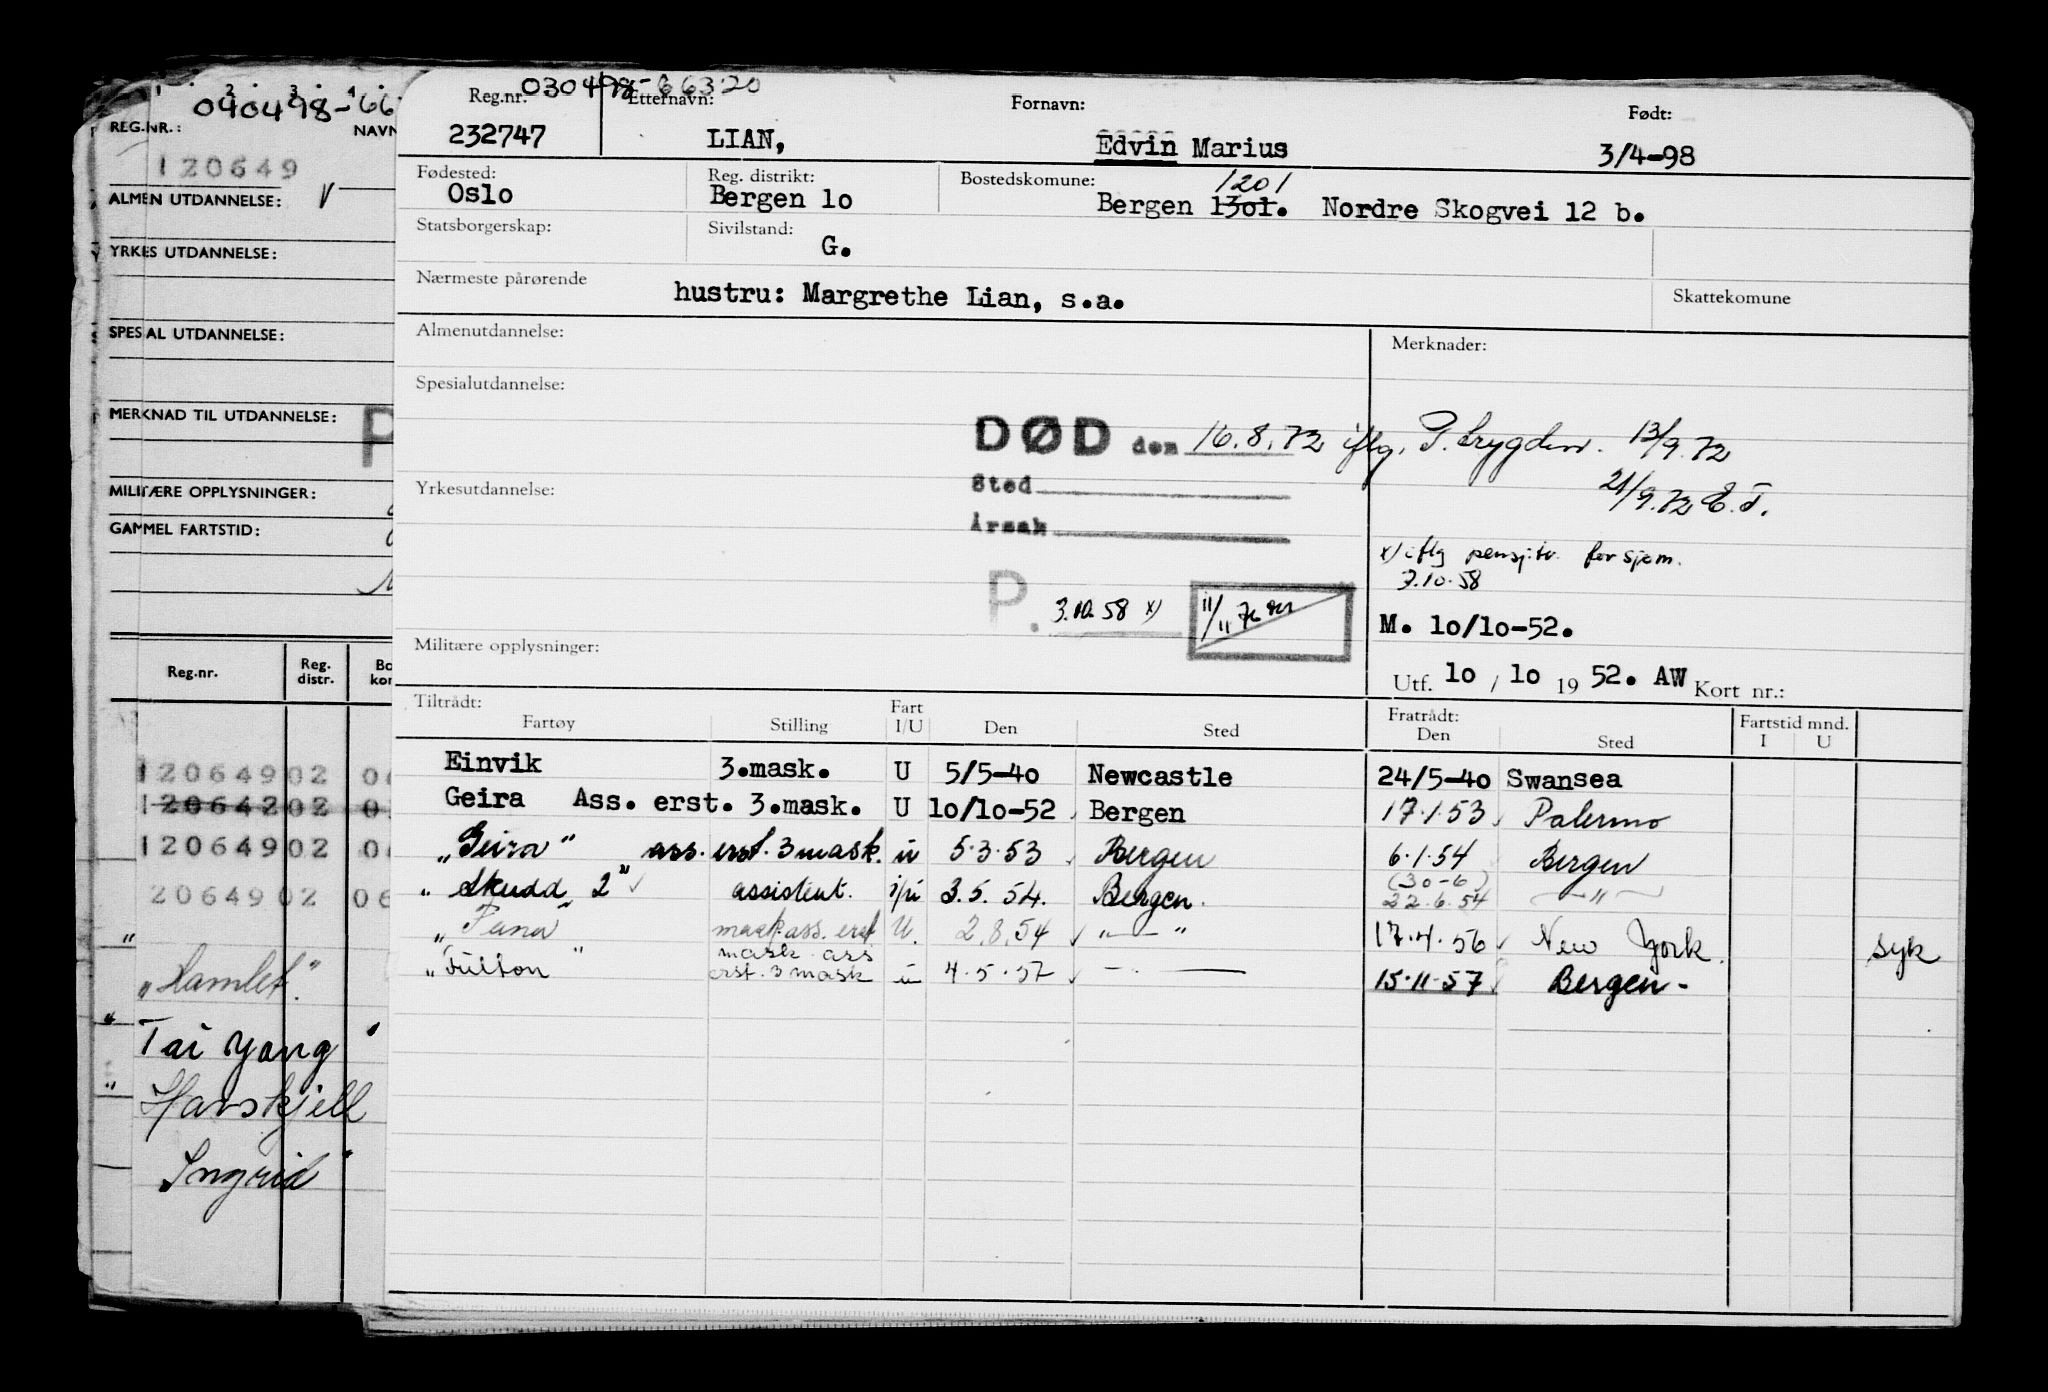 1 . 2 . 3 . 4 .
040498-66
REG.NR.:
NAVN
120649
ALMEN UTDANNELSE:
V
YRKES UTDANNELSE:
SPESIAL UTDANNELSE:
MERKNAD TIL UTDANNELSE:
P
MILITÆRE OPPLYSNINGER:
GAMMEL FARTSTID:
Reg.nr.
Reg. distr.
Bo
kom
12064902 0
12064202 0
12064902 0
2064902 06
"Hamlet"
"Tai Yang"
"Havskjell
Ingrid"
030498-66320
Reg.nr. Etternavn: Fornavn: Født:
232747 LIAN, Edvin Marius 3/4-98
Fødested: Reg. distrikt: Bostedskomune: 1201
Oslo Bergen lo Bergen 13o1. Nordre Skogvei 12 b.
Statsborgerskap: Sivilstand:
G.
Nærmeste pårørende
hustru: Margrethe Lian, s.a.
Skattekomune
Almenutdannelse:
Merknader:
Spesialutdannelse:
DØD den 16.8.72 iflg. P.trygden. 13/9.72
21/9.72 E.T.
Sted
Yrkesutdannelse:
Årsak
x) iflg pensj.tr. for sjøm.
3.10.58
P. 3.10.58 x)
11/11 72
M. 10/10-52.
Militære opplysninger:
Utf. 10 / 10 19 52. AW Kort nr.:
Tiltrådt: Fratrådt: Fartstid mnd.
Fartøy Stilling Fart I/U Den Sted Den Sted I U
Einvik 3.mask. U 5/5-40 Newcastle 24/5-40 Swansea
Geira Ass. erst. 3.mask. U 10/10-52 Bergen 17.1.53 Palermo
"Geira" ass. erst. 3 mask. u 5.3.53 Bergen 6.1.54 Bergen
(30-6)
"Skudd 2" assistent. i/u 3.5.54. Bergen. 22.6.54 —"—
"Fana" mask ass. erst U. 2.8.54 —"— 17.4.56 New York. syk
mask. ass
"Fulton" erst. 3 mask u 4.5.57 —"— 15.11.57 Bergen-